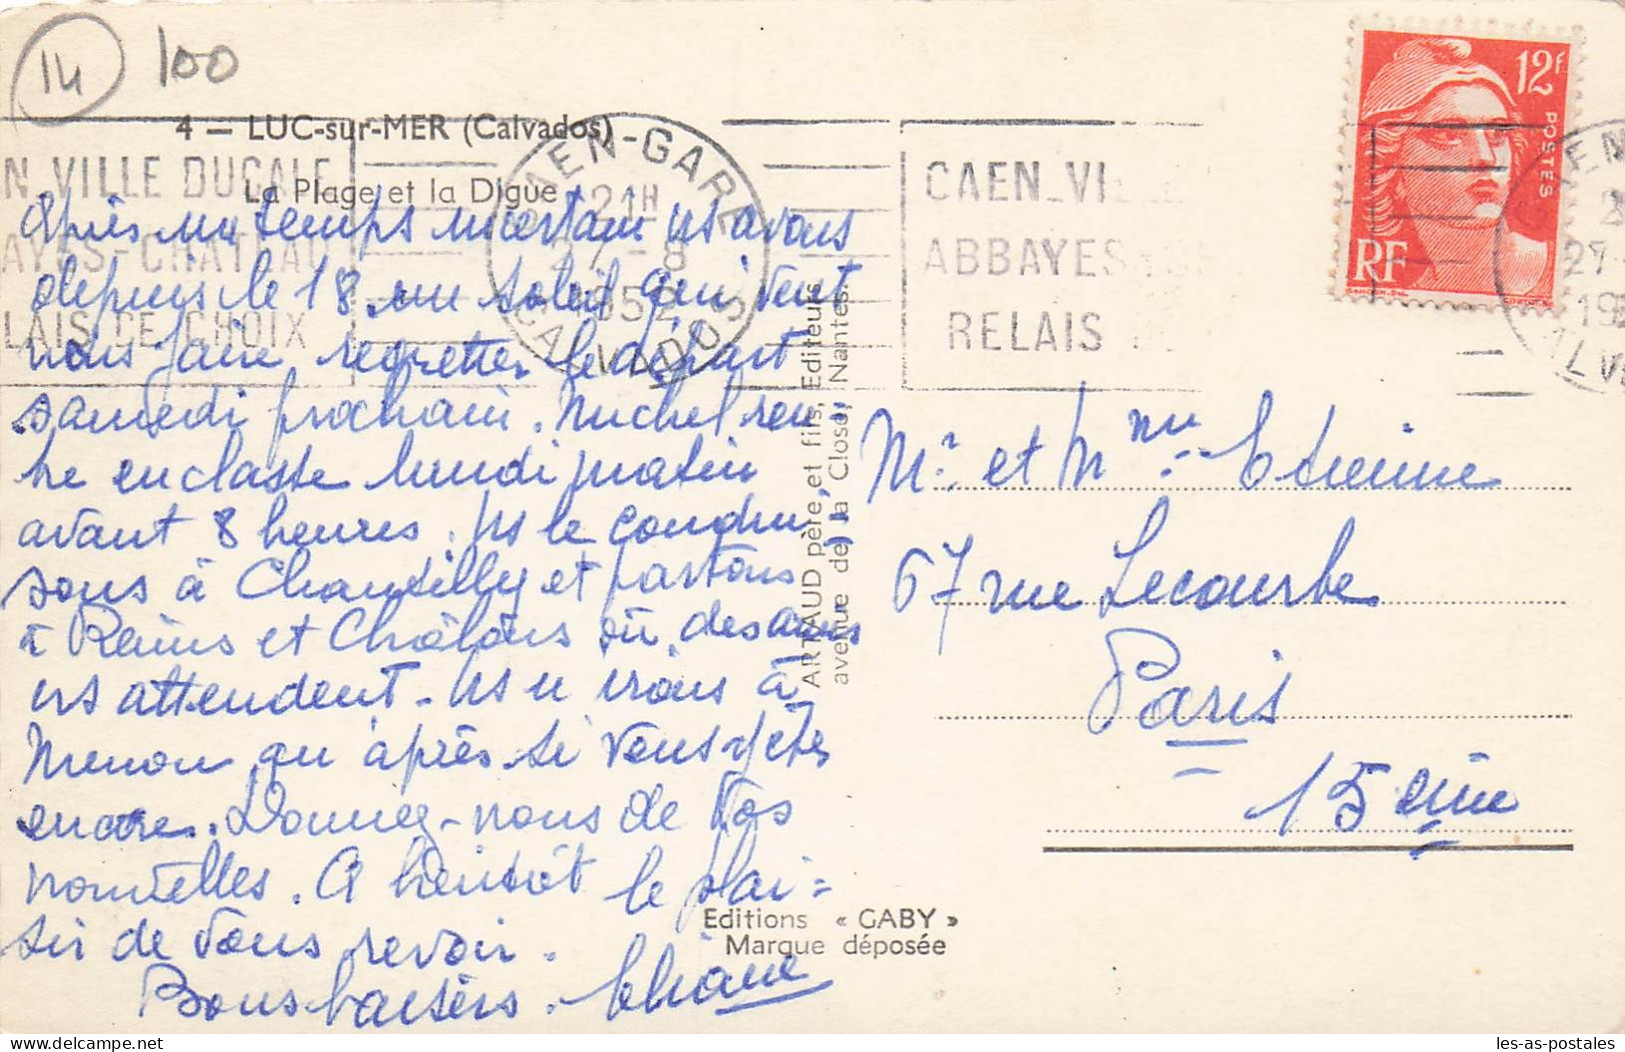 14
100
4 — LUC-sur-MER (Calvados)
La Plage et la Digue
N VILLE DUCALE
AYES-CHATEAU
LAIS DE CHOIX
CAEN-GARE
21H
27-8
1952
CALVADOS
CAEN_VI
ABBAYES
RELAIS
12f
POSTES
RF
Après un temps incertain ns avons
depuis le 18 un soleil qui vient
nous faire regretter le départ
samedi prochain. Michel ren-
tre en classe lundi matin
avant 8 heures. Ns le condui-
sons à Chantilly et partons
à Reims et Châlons où des amis
ns attendent. Ns n irons à
Menou qu'après si vous y êtes
encore. Donnez-nous de vos
nouvelles. A bientôt le plai=
sir de vous revoir.
Bons baisers. Eliane
ARTAUD père et fils, Editeurs
avenue de la Close, Nantes.
Editions « GABY »
Marque déposée
Mr. et Mme Etienne
67 rue Lecourbe
Paris
15 ème
les-as-postales
delcampe.net